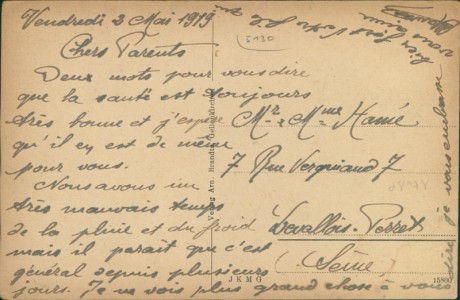 Vendredi 2 Mai 1919
Chers Parents
Deux mots pour vous dire
que la santé est toujours
très bonne et j'espère
qu'il en est de même
pour vous.
Nous avons un
très mauvais temps
de la pluie et du froid
mais il parait que c'est
général depuis plusieurs
jours. Je ne vois plus grand chose à vous
dire je vous embrasse
bien fort Votre fils qui
vous aime
5130
Mr & Mme Hamé
7 Rue Vergniaud 7
Levallois-Perret
(Seine)
Verlag Arn. Brandts,
JKMG